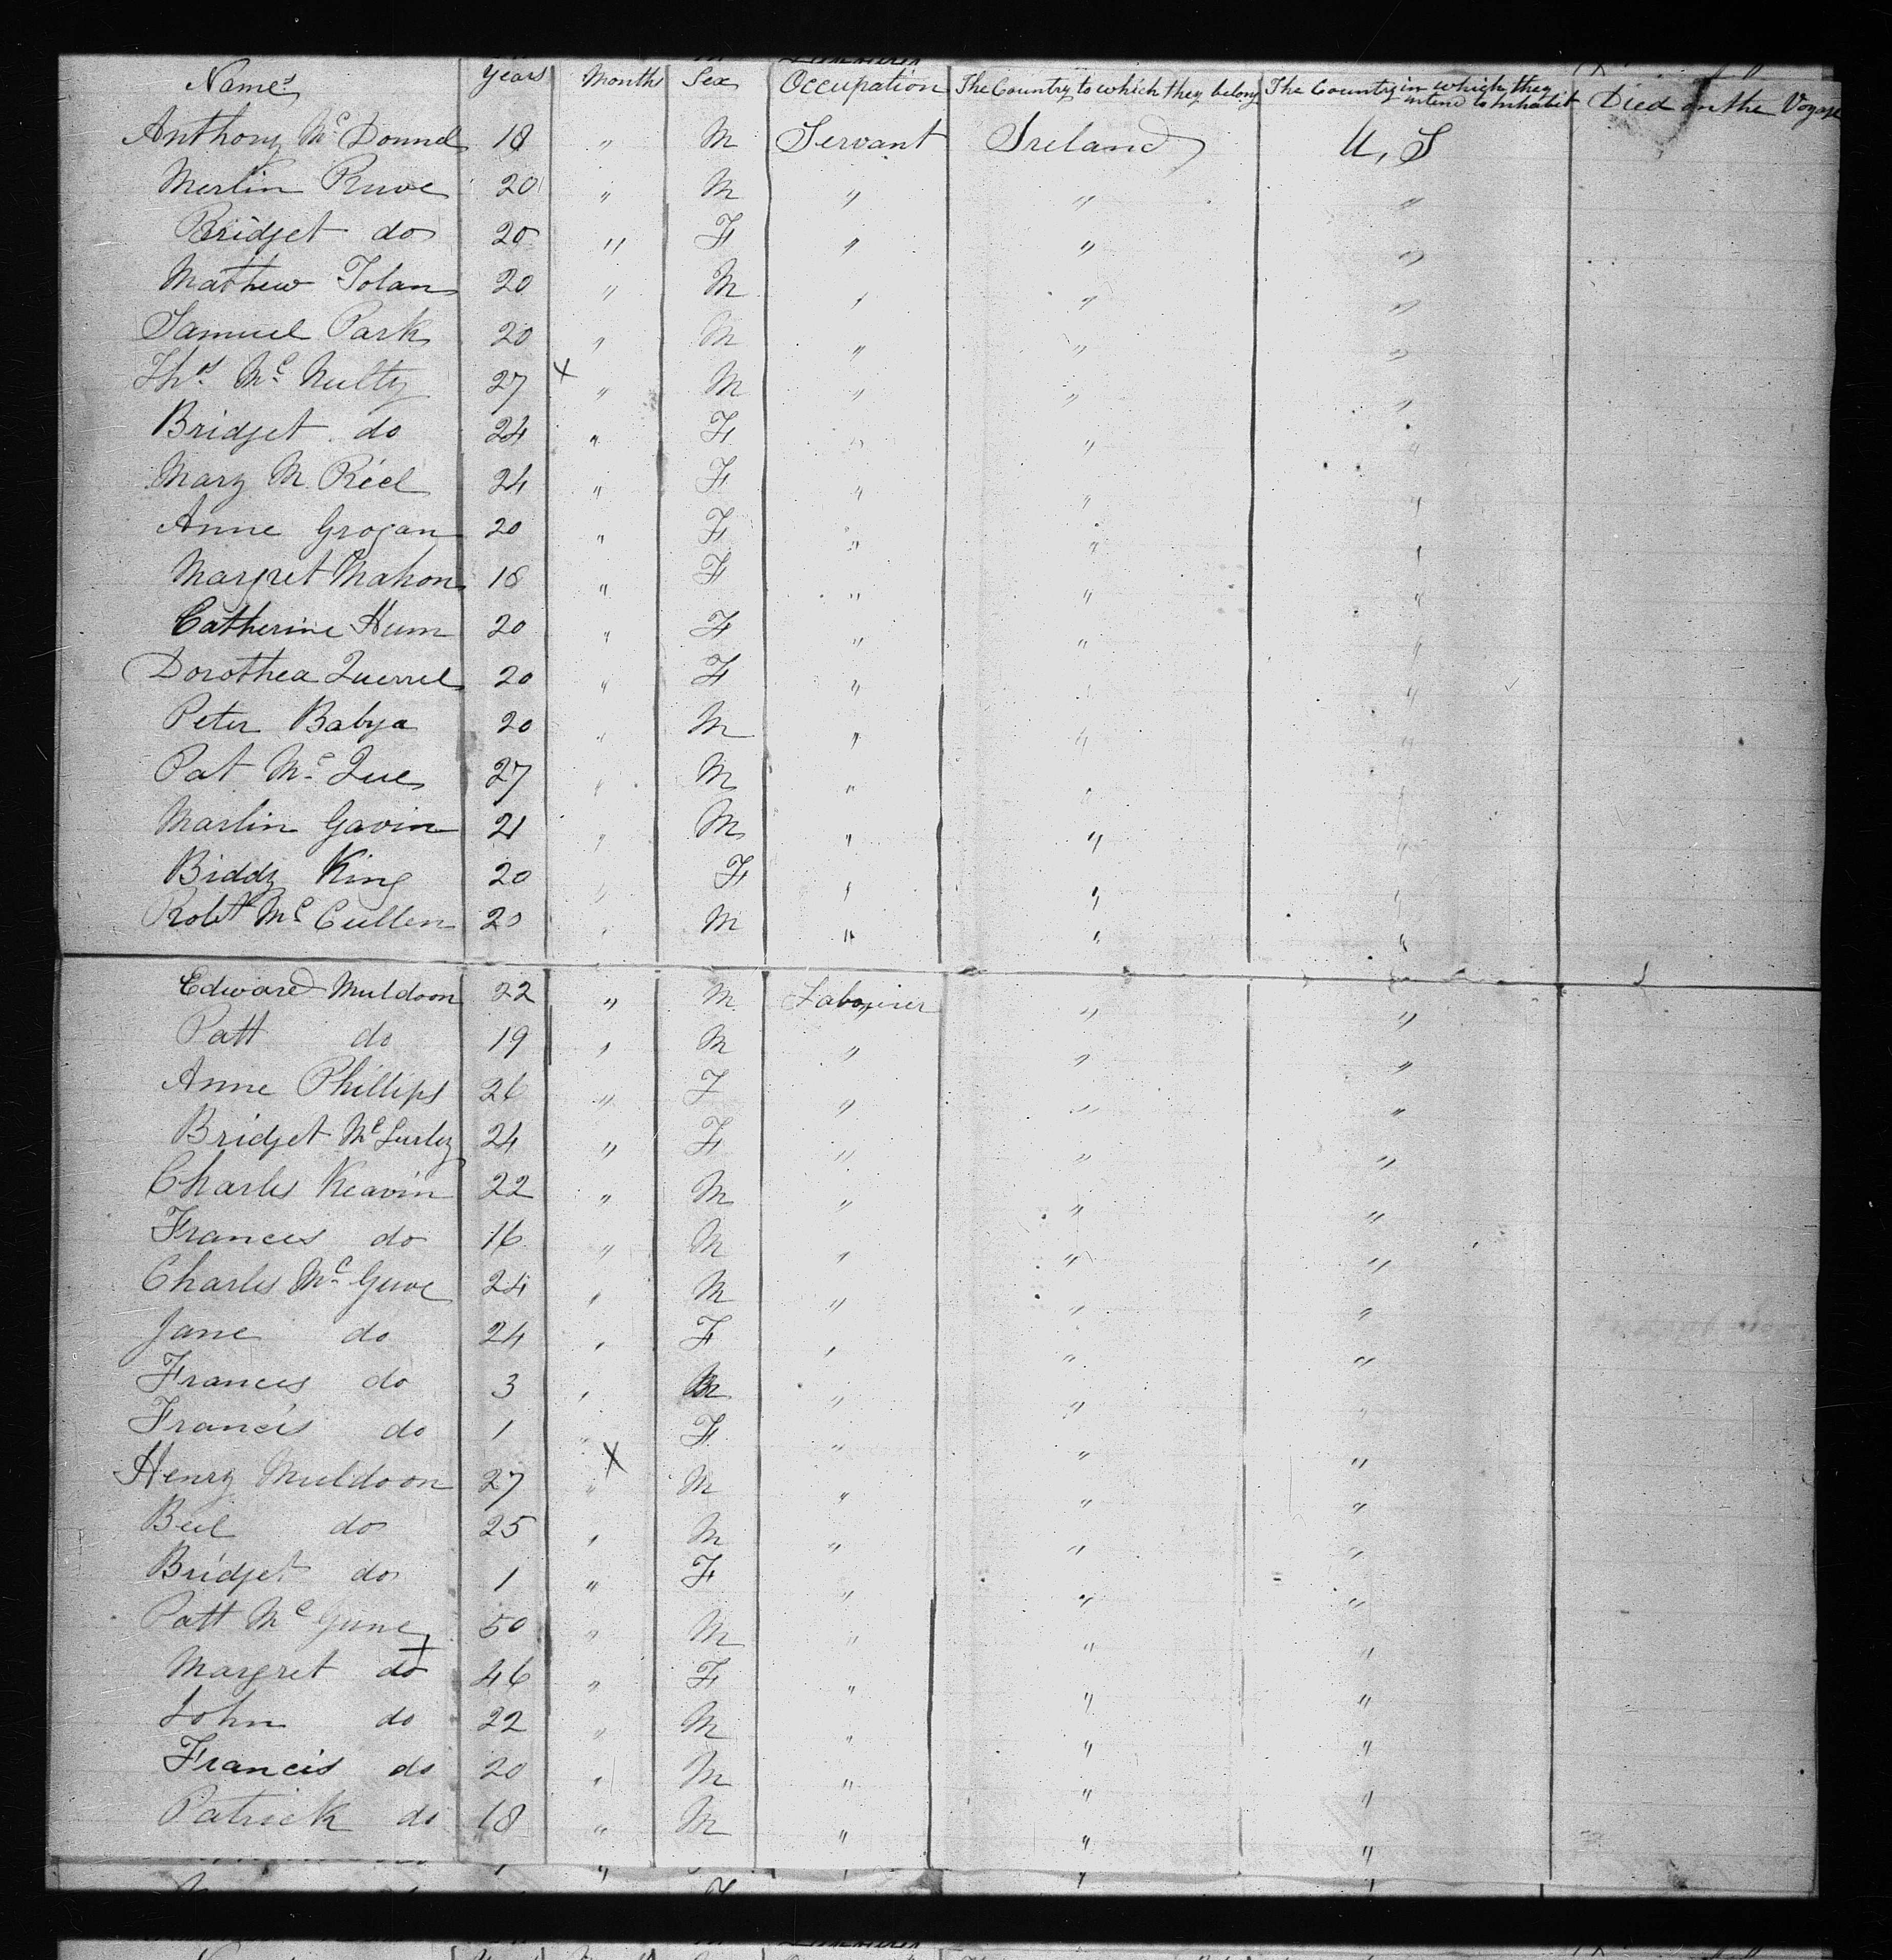 Names Years Months Sex Occupation The Country to which they belong The Country in which they intend to Inhabit Died on the Voyage
Anthony Mc Donnel 18 " M Servant Ireland U, S
Merlin Ruve 20 " M " " "
Bridget do 20 " F " " "
Mathew Tolan 20 " M " " "
Samuel Park 20 " M " " "
Thos Mc Nulty 27 x " M " " "
Bridget do 24 " F " " "
Mary M. Riel 24 " F " " "
Anne Grogan 20 " F " " "
Margret Mahon 18 " F " " "
Catherine Hum 20 " F " " "
Dorothea Querrel 20 " F " " "
Peter Babya 20 " M " " "
Pat Mc Que 27 " M " " "
Marlin Gavin 21 " M " " "
Biddy King 20 " F " " "
Robt Mc Cullen 20 " M " " "
Edward Muldoon 22 " M Labourer " "
Patt do 19 " M " " "
Anne Phillips 26 " F " " "
Bridget Mc 24 " F " " "
Charles Keavin 22 " M " " "
Frances do 16 " M " " "
Charles Mc Guve 24 " M " " "
Jane do 24 " F " " "
Frances do 3 " M " " "
Francis do 1 " F " " "
Henry Muldoon 27 X " M " " "
do 25 " M " " "
Bridget do 1 " F " " "
Patt Mc Gune 50 " M " " "
Margret do 46 " F " " "
John do 22 " M " " "
Francis do 20 " M " " "
Patrick do 18 " M " " "